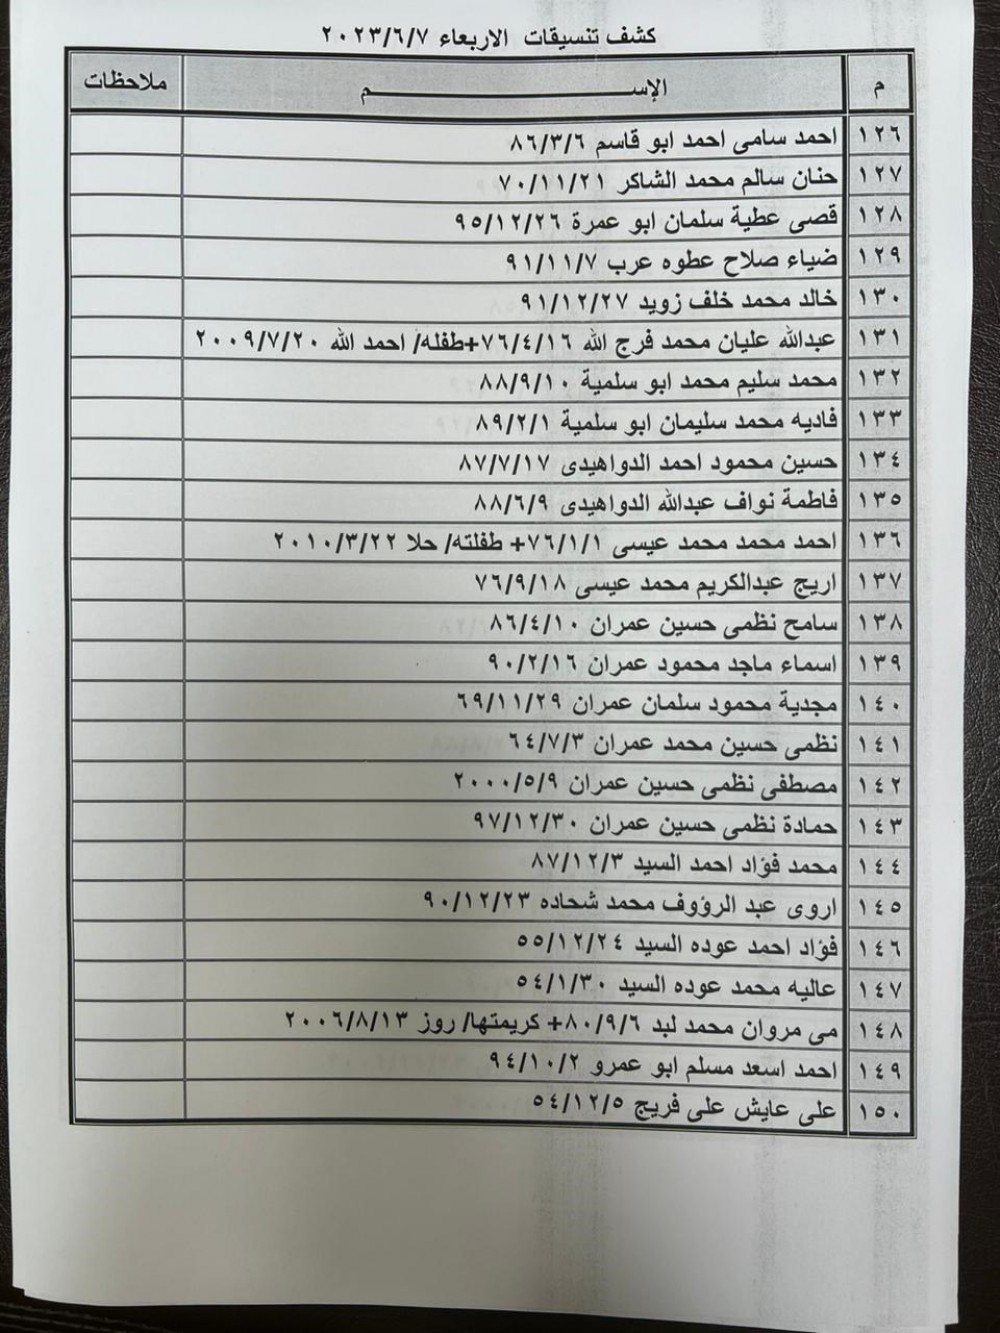 كشف تنسيقات الاربعاء ٢٠٢٣/٦/٧
م الإســـــــــم ملاحظات
١٢٦ احمد سامى احمد ابو قاسم ٨٦/٣/٦
١٢٧ حنان سالم محمد الشاكر ٧٠/١١/٢١
١٢٨ قصى عطية سلمان ابو عمرة ٩٥/١٢/٢٦
١٢٩ ضياء صلاح عطوه عرب ٩١/١١/٧
١٣٠ خالد محمد خلف زويد ٩١/١٢/٢٧
١٣١ عبدالله عليان محمد فرج الله ٧٦/٤/١٦+طفله/ احمد الله ٢٠٠٩/٧/٢٠
١٣٢ محمد سليم محمد ابو سلمية ٨٨/٩/١٠
١٣٣ فاديه محمد سليمان ابو سلمية ٨٩/٢/١
١٣٤ حسين محمود احمد الدواهيدى ٨٧/٧/١٧
١٣٥ فاطمة نواف عبدالله الدواهيدى ٨٨/٦/٩
١٣٦ احمد محمد محمد عيسى ٧٦/١/١+ طفلته/ حلا ٢٠١٠/٣/٢٢
١٣٧ اريج عبدالكريم محمد عيسى ٧٦/٩/١٨
١٣٨ سامح نظمى حسين عمران ٨٦/٤/١٠
١٣٩ اسماء ماجد محمود عمران ٩٠/٢/١٦
١٤٠ مجدية محمود سلمان عمران ٦٩/١١/٢٩
١٤١ نظمى حسين محمد عمران ٦٤/٧/٣
١٤٢ مصطفى نظمى حسين عمران ٢٠٠٠/٥/٩
١٤٣ حمادة نظمى حسين عمران ٩٧/١٢/٣٠
١٤٤ محمد فؤاد احمد السيد ٨٧/١٢/٣
١٤٥ اروى عبد الرؤوف محمد شحاده ٩٠/١٢/٢٣
١٤٦ فؤاد احمد عوده السيد ٥٥/١٢/٢٤
١٤٧ عاليه محمد عوده السيد ٥٤/١/٣٠
١٤٨ مى مروان محمد لبد ٨٠/٩/٦+ كريمتها/ روز ٢٠٠٦/٨/١٣
١٤٩ احمد اسعد مسلم ابو عمرو ٩٤/١٠/٢
١٥٠ على عايش على فريج ٥٤/١٢/٥